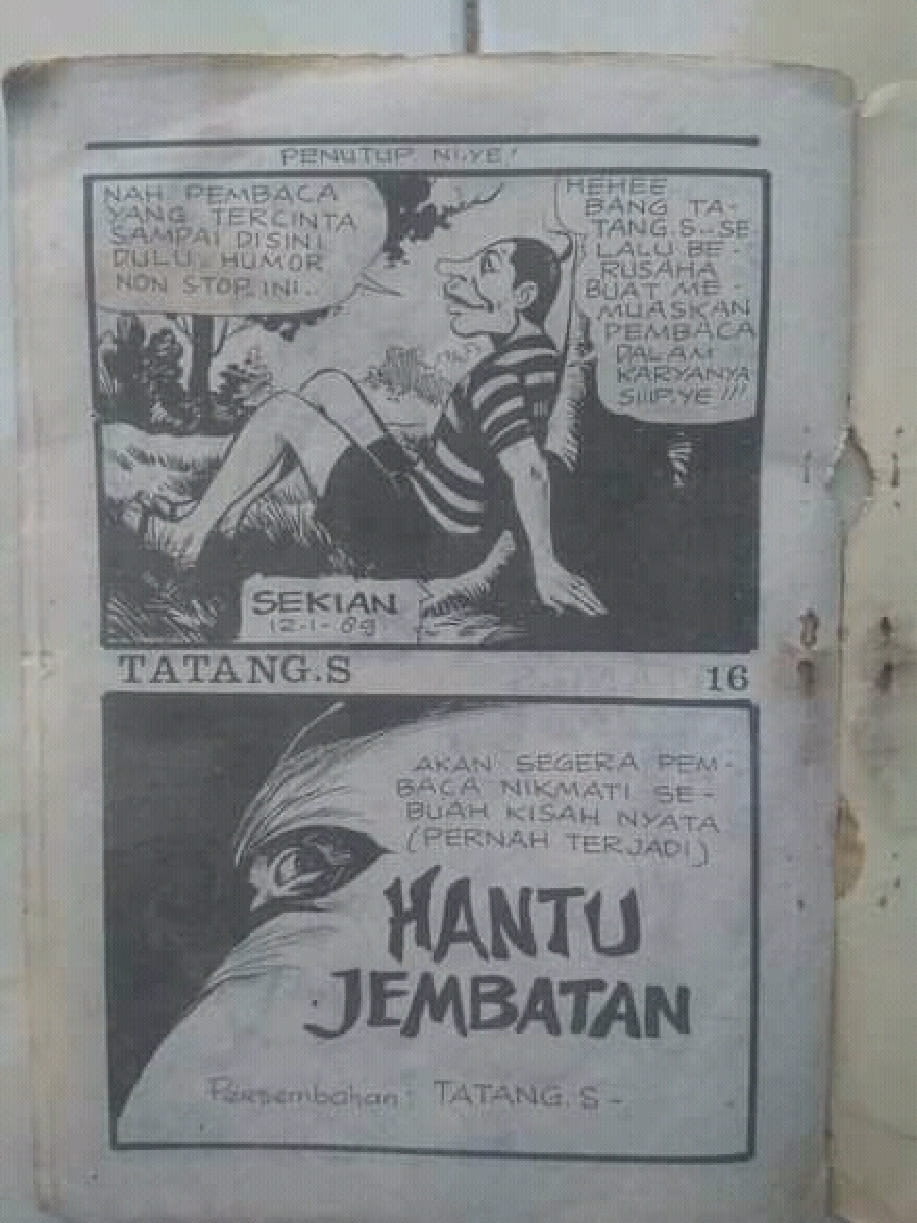 PENUTUP NI.YE!
NAH PEMBACA
YANG TERCINTA
SAMPAI DISINI
DULU.. HUMOR
NON STOP. INI..
HEHEE
BANG TA-
TANG.S..SE
LALU BE-
RUSAHA
BUAT ME-
MUASKAN
PEMBACA
DALAM
KARYANYA
SIIIP.YE!!!
SEKIAN
12-1-89
TATANG.S
16
AKAN SEGERA PEM-
BACA NIKMATI SE-
BUAH KISAH NYATA
(PERNAH TERJADI)
HANTU
JEMBATAN
Persembahan: TATANG. S-